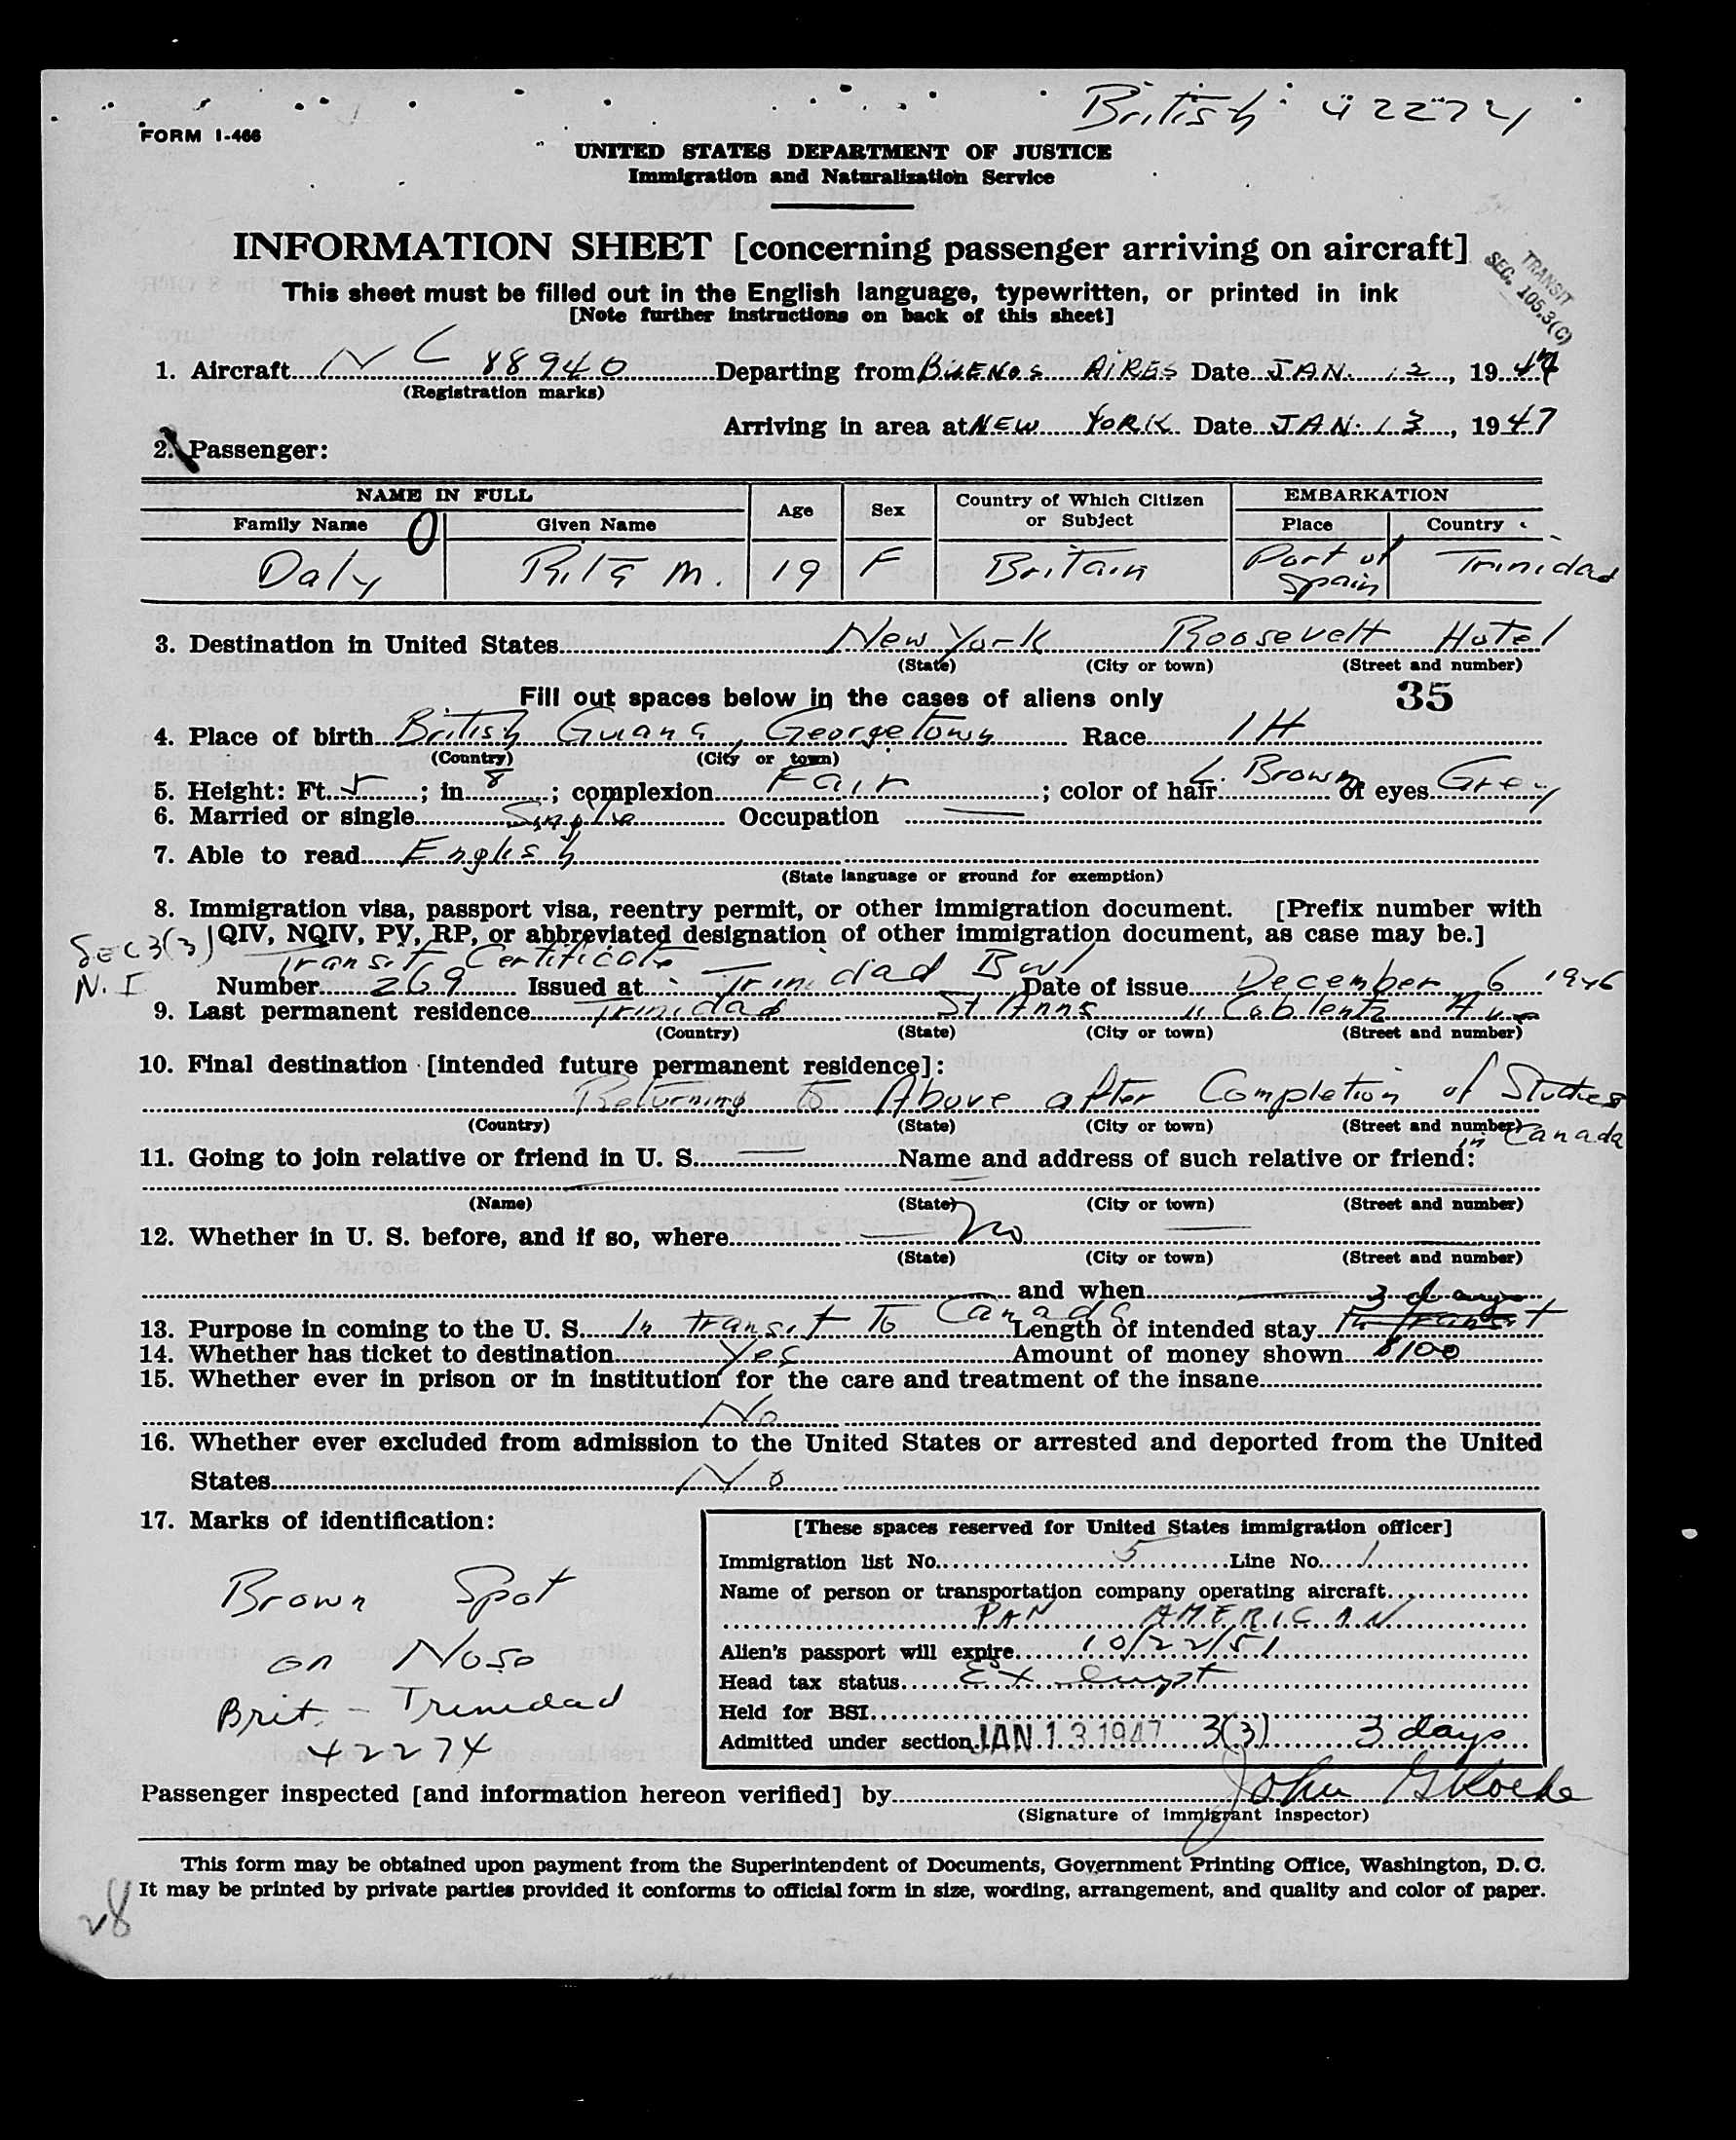 British 42274
FORM I-466
UNITED STATES DEPARTMENT OF JUSTICE
Immigration and Naturalization Service
INFORMATION SHEET [concerning passenger arriving on aircraft]
TRANSIT
SEC. 105.3(C)
This sheet must be filled out in the English language, typewritten, or printed in ink
[Note further instructions on back of this sheet]
1. Aircraft NC 88940 Departing from BUENOS AIRES Date JAN. 12, 1947
(Registration marks)
Arriving in area at NEW YORK Date JAN. 13, 1947
2. Passenger:
NAME IN FULL Age Sex Country of Which Citizen or Subject EMBARKATION
Family Name Given Name Place Country
O
Daly Rita M. 19 F Britain Port of Spain Trinidad
3. Destination in United States New York Roosevelt Hotel
(State) (City or town) (Street and number)
Fill out spaces below in the cases of aliens only 35
4. Place of birth British Guana, Georgetown Race IH
(Country) (City or town)
5. Height: Ft. 5; in. 8; complexion Fair; color of hair L. Brown of eyes Grey
6. Married or single Single Occupation —
7. Able to read English
(State language or ground for exemption)
8. Immigration visa, passport visa, reentry permit, or other immigration document. [Prefix number with
QIV, NQIV, PV, RP, or abbreviated designation of other immigration document, as case may be.]
SEC 3(3)
N.I
Transit Certificate
Number 269 Issued at Trinidad BWI Date of issue December 6 1946
9. Last permanent residence Trinidad St Anns 11 Coblentz Ave
(Country) (State) (City or town) (Street and number)
10. Final destination [intended future permanent residence]:
Returning to Above after Completion of Studies
in Canada
(Country) (State) (City or town) (Street and number)
11. Going to join relative or friend in U. S. — Name and address of such relative or friend:
(Name) (State) (City or town) (Street and number)
12. Whether in U. S. before, and if so, where No
(State) (City or town) (Street and number)
and when —
13. Purpose in coming to the U. S. In transit to Canada Length of intended stay 3 days In transit
14. Whether has ticket to destination Yes Amount of money shown $100
15. Whether ever in prison or in institution for the care and treatment of the insane
No
16. Whether ever excluded from admission to the United States or arrested and deported from the United
States No
17. Marks of identification:
Brown Spot
on Nose
Brit. - Trinidad
42274
[These spaces reserved for United States immigration officer]
Immigration list No. 5 Line No. 1
Name of person or transportation company operating aircraft
PAN AMERICAN
Alien's passport will expire 10/22/51
Head tax status Exempt
Held for BSI
Admitted under section JAN 13 1947 3(3) 3 days
Passenger inspected [and information hereon verified] by John G
(Signature of immigrant inspector)
This form may be obtained upon payment from the Superintendent of Documents, Government Printing Office, Washington, D. C.
It may be printed by private parties provided it conforms to official form in size, wording, arrangement, and quality and color of paper.
28